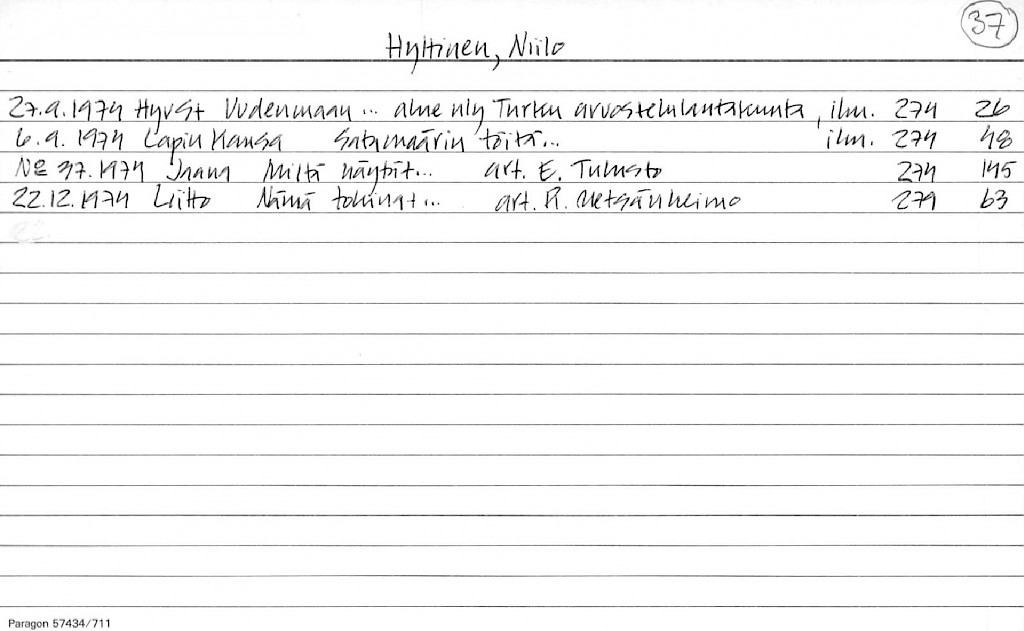 37
Hyttinen, Niilo
27.9.1974 HyvSt Uudenmaan ... alue näy Turku arvostelulautakunta, ilm. 274 26
6.9.1974 Lapin Kansa Satumaarin töitä... ilm. 274 48
No 37.1974 Jaana Miltä näytät... art. E. Tulusto 274 145
22.12.1974 Liitto Nämä tokinat... art. R. Metsänheimo 279 63
Paragon 57434/711